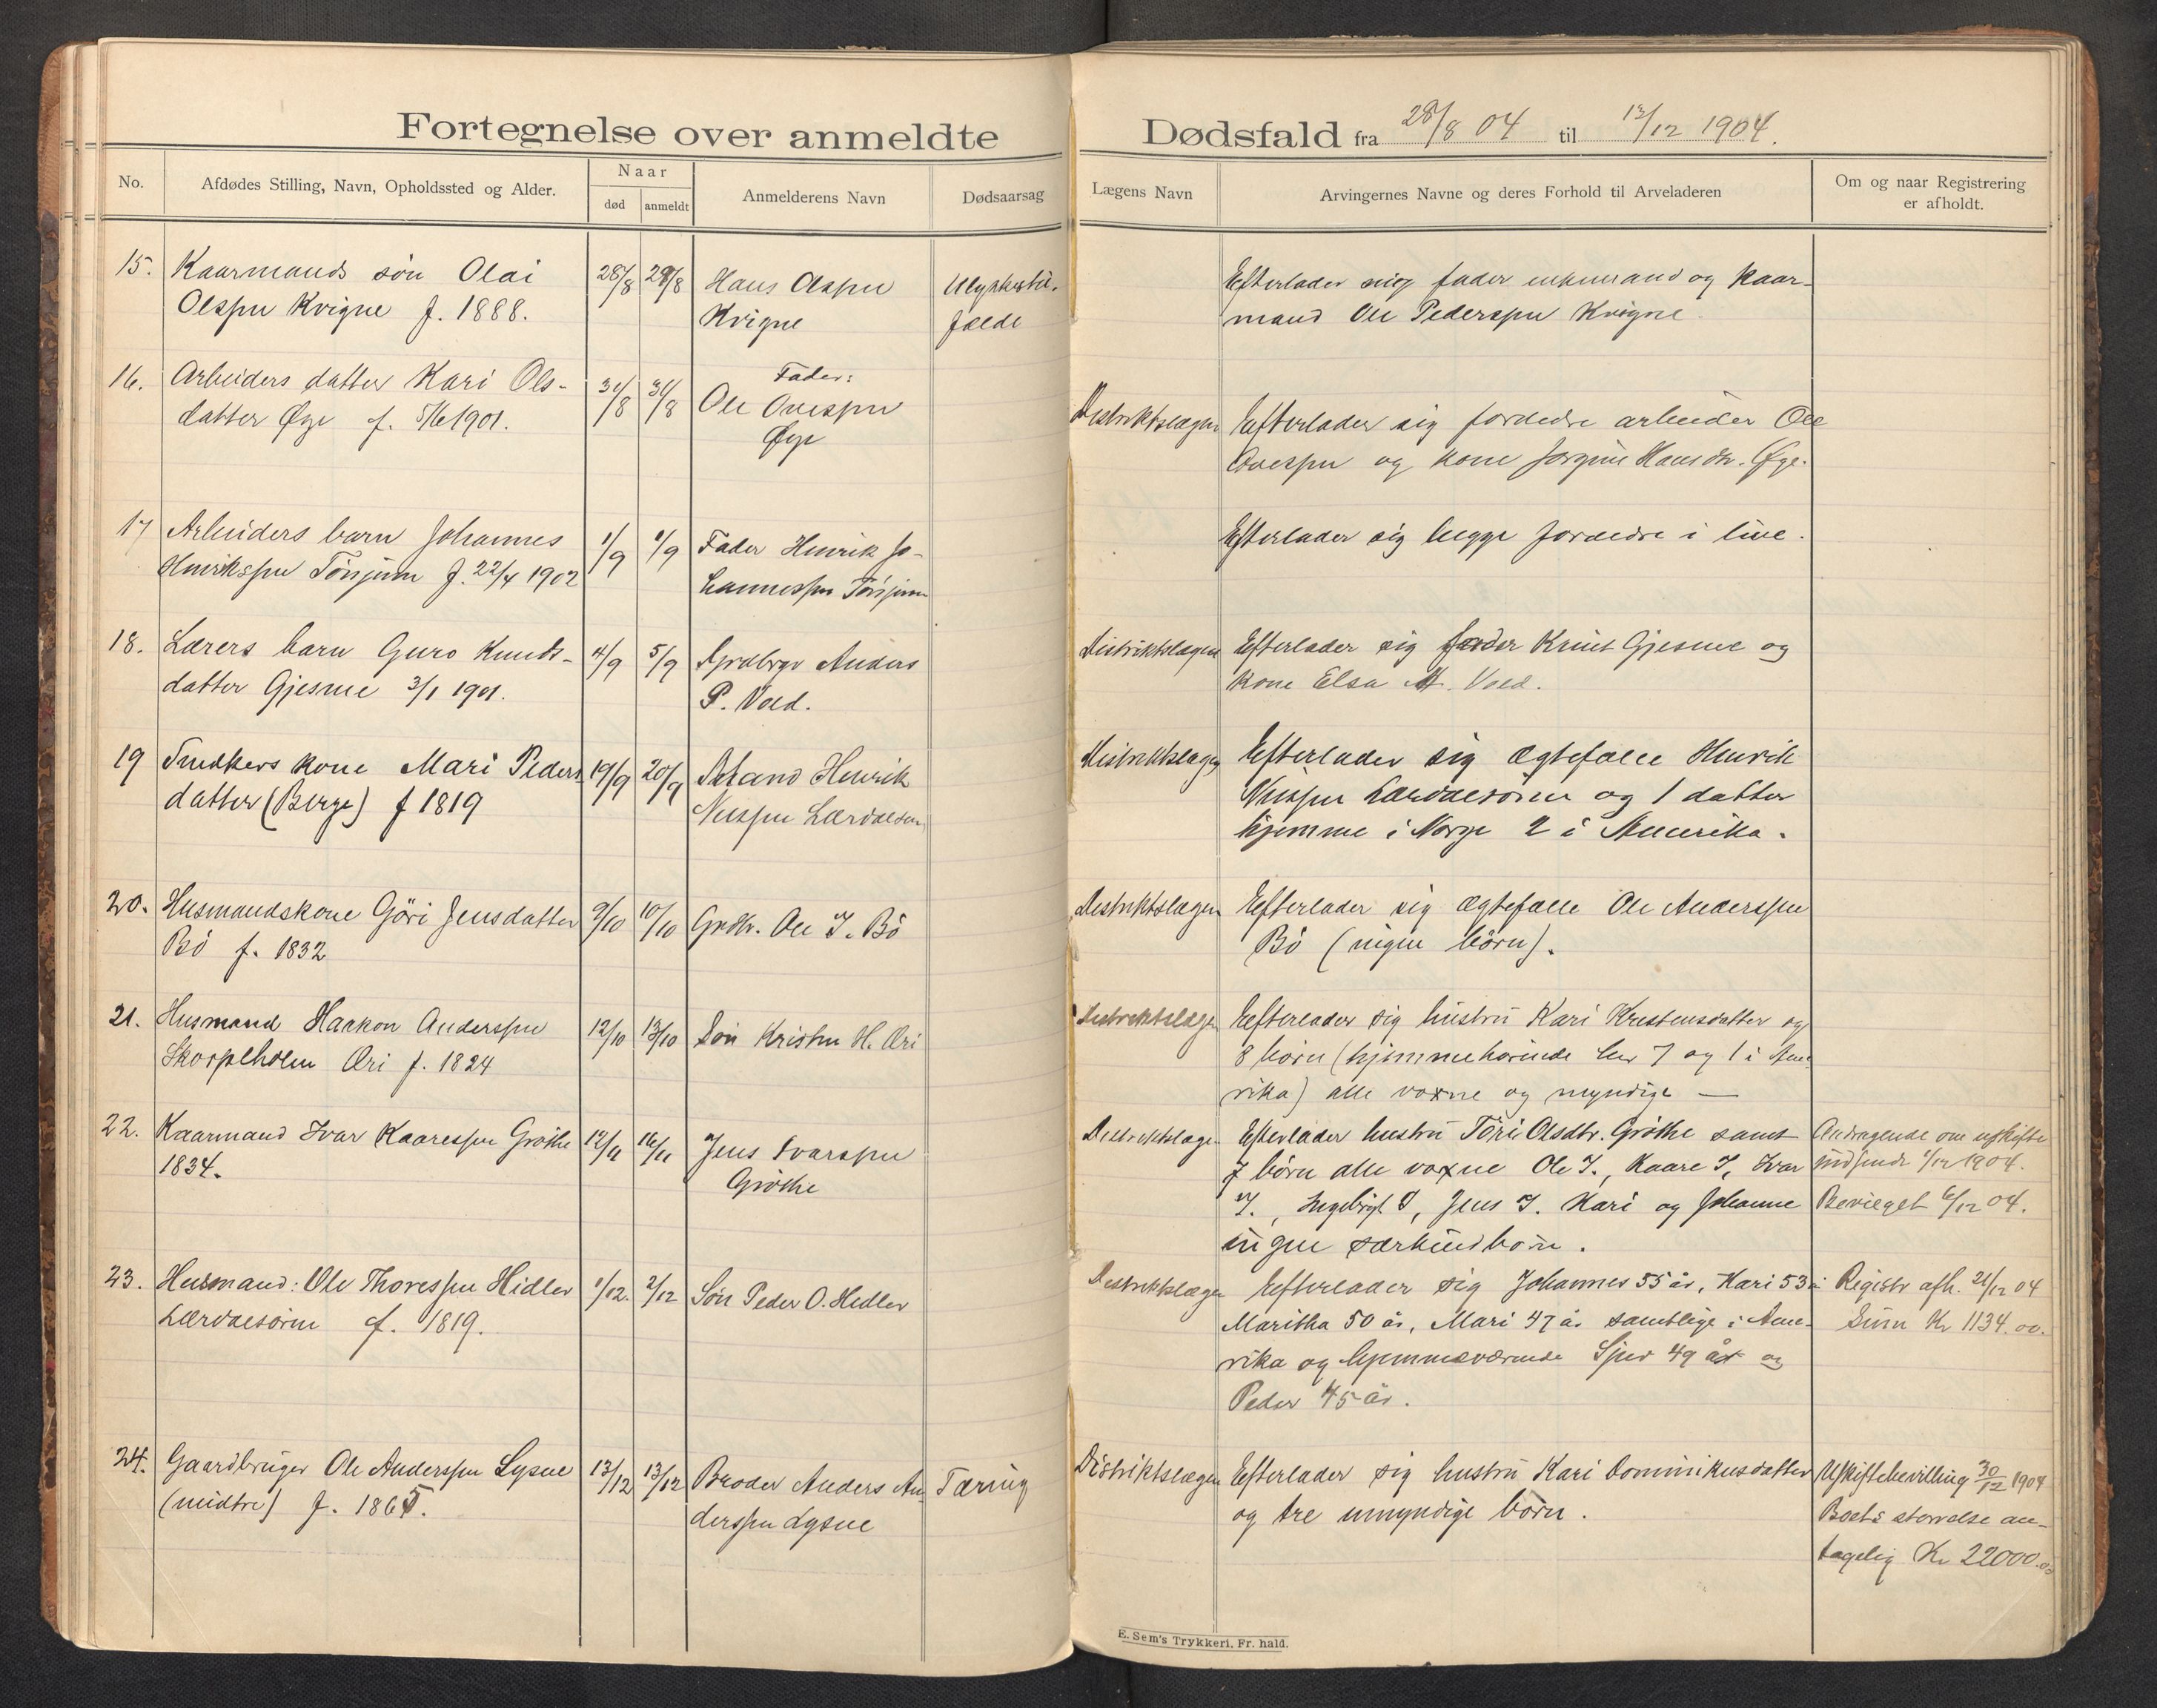 Fortegnelse over anmeldte
Dødsfald fra 28/8 04 til 13/12 1904.
No.
Afdødes Stilling, Navn, Opholdssted og Alder.
Naar
død
anmeldt
Anmelderens Navn
Dødsaarsag
Lægens Navn
Arvingernes Navne og deres Forhold til Arveladeren
Om og naar Registrering
er afholdt.
15.
Kaarmands søn Olai
Olsøn Kvigne f. 1888.
28/8
29/8
Hans Olsøn
Kvigne
Ulykkestil-
fælde
Efterlader sig fader enkemand og kaar-
mand Ole Pedersøn Kvigne.
16.
Arbeiders datter Kari Ols-
datter Øye f. 5/6 1901.
31/8
31/8
Fader:
Ole Ovesøn
Øye
Distriktslægen
Efterlader sig forældre arbeider Ole
Ovesøn og kone Jorgine Hansdtr. Øye.
17
Arbeiders barn Johannes
Henriksøn Tönjum f. 22/4 1902
1/9
1/9
Fader Henrik Jo-
hannesøn Tönjum
Efterlader sig begge forældre i live.
18.
Lærers barn Guro Knuds-
datter Gjesme 3/1 1901.
4/9
5/9
Grdbrgr Anders
P. Vold.
Distriktslægen
Efterlader sig fader Knut Gjesme og
kone Elsa A. Vold.
19
Snedkers kone Mari Peders
datter (Berge) f 1819
19/9
20/9
Strand Henrik
Nilsøn Lærdalsøren
Distriktslægen
Efterlader sig ægtefælle Henrik
Nilsøn Lærdalsören og 1 datter
hjemme i Norge 2 i Amerika.
20.
Husmandskone Göri Jensdatter
Bö f. 1832
9/10
10/10
Grdbr. Ole J. Bö
Distriktslægen
Efterlader sig ægtefælle Ole Andersøn
Bö (ingen börn).
21.
Husmand Haakon Andersøn
Skorpeholen Øri f. 1824
12/10
13/10
Sön Kristen H. Øri
Distriktslægen
Efterlader sig hustru Kari Kristensdatter og
8 börn (hjemmehörende her 7 og 1 i Ame-
rika) alle voxne og myndige —
22.
Kaarmand Ivar Kaaresøn Gröthe
1834.
12/11
16/11
Jens Ivarsøn
Gröthe
Distriktslægen
Efterlader hustru Töri Olsdtr. Gröthe samt
7 börn alle voxne Ole I., Kaare I, Ivar
I., Ingebrigt I, Jens I. Kari og Johanne
ingen særkuldbörn.
Andragende om uskifte
indsendt 1/12 1904.
Bevilget 6/12 04.
23.
Husmand: Ole Thoresøn Hidler
Lærdalsören f. 1819.
1/12.
2/12
Sön Peder O. Hidler
Distriktslægen
Efterlader sig Johannes 55 år, Kari 53 år
Maritha 50 år, Mari 47 år samtlige i Ame-
rika og hjemmeværende Sjur 49 år og
Peder 45 år.
Registr afh. 21/12 04
Sum Kr 1134.00.
24.
Gaardbruger Ole Andersøn Lysne
(midtre) f. 1865.
13/12
13/12
Broder Anders An-
dersøn Lysne
Tæring
Distriktslægen
Efterlader sig hustru Kari Dominikusdatter
og tre umyndige börn.
Uskiftebevilling 30/12 1904
Boets størrelse an-
tagelig Kr 22000.00
E. Sem's Trykkeri, Fr. hald.